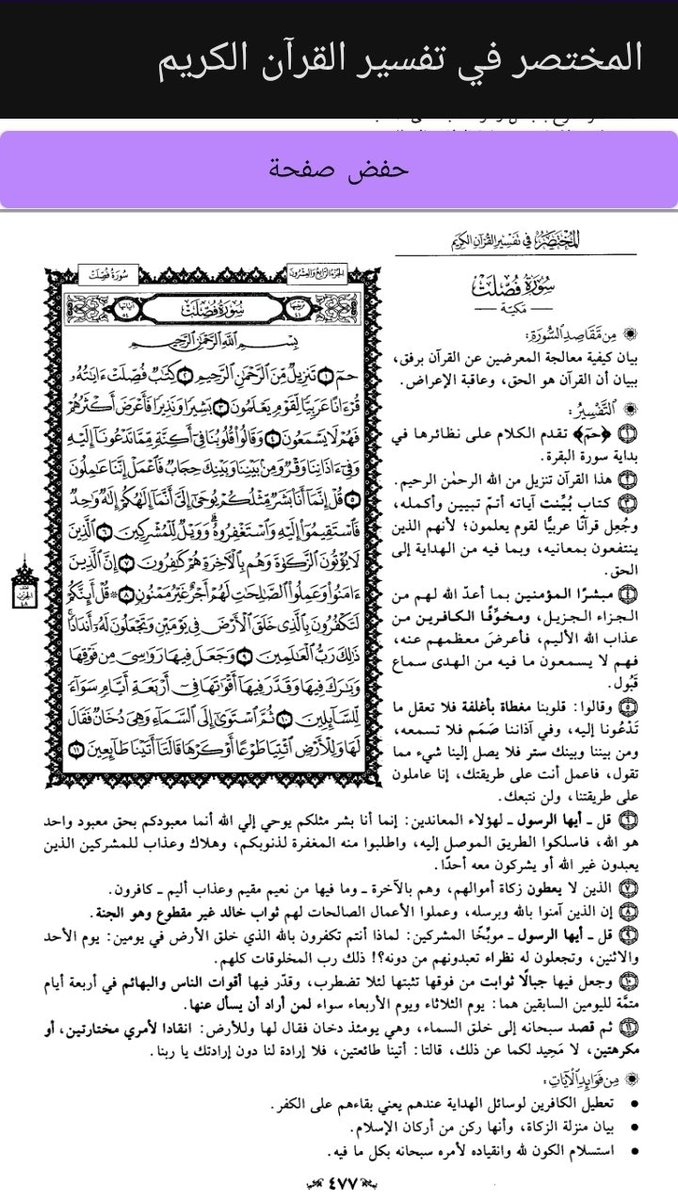 المختصر في تفسير القرآن الكريم
حفض صفحة
المختصر في تفسير القرآن الكريم
سورة فصلت
الجزء الرابع والعشرون
سورة فصلت
بِسْمِ اللَّهِ الرَّحْمَٰنِ الرَّحِيمِ
حمٓ ١ تَنزِيلٌ مِّنَ الرَّحْمَٰنِ الرَّحِيمِ ٢ كِتَٰبٌ فُصِّلَتْ ءَايَٰتُهُۥ
قُرْءَانًا عَرَبِيًّا لِّقَوْمٍ يَعْلَمُونَ ٣ بَشِيرًا وَنَذِيرًا فَأَعْرَضَ أَكْثَرُهُمْ
فَهُمْ لَا يَسْمَعُونَ ٤ وَقَالُوا۟ قُلُوبُنَا فِىٓ أَكِنَّةٍ مِّمَّا تَدْعُونَآ إِلَيْهِ
وَفِىٓ ءَاذَانِنَا وَقْرٌ وَمِنۢ بَيْنِنَا وَبَيْنِكَ حِجَابٌ فَٱعْمَلْ إِنَّنَا عَٰمِلُونَ
٥ قُلْ إِنَّمَآ أَنَا۠ بَشَرٌ مِّثْلُكُمْ يُوحَىٰٓ إِلَىَّ أَنَّمَآ إِلَٰهُكُمْ إِلَٰهٌ وَٰحِدٌ
فَٱسْتَقِيمُوٓا۟ إِلَيْهِ وَٱسْتَغْفِرُوهُ وَوَيْلٌ لِّلْمُشْرِكِينَ ٦ ٱلَّذِينَ
لَا يُؤْتُونَ ٱلزَّكَوٰةَ وَهُم بِٱلْءَاخِرَةِ هُمْ كَٰفِرُونَ ٧ إِنَّ ٱلَّذِينَ
ءَامَنُوا۟ وَعَمِلُوا۟ ٱلصَّٰلِحَٰتِ لَهُمْ أَجْرٌ غَيْرُ مَمْنُونٍ ٨ ۞ قُلْ أَئِنَّكُمْ
لَتَكْفُرُونَ بِٱلَّذِى خَلَقَ ٱلْأَرْضَ فِى يَوْمَيْنِ وَتَجْعَلُونَ لَهُۥٓ أَندَادًا
ذَٰلِكَ رَبُّ ٱلْعَٰلَمِينَ ٩ وَجَعَلَ فِيهَا رَوَٰسِىَ مِن فَوْقِهَا
وَبَٰرَكَ فِيهَا وَقَدَّرَ فِيهَآ أَقْوَٰتَهَا فِىٓ أَرْبَعَةِ أَيَّامٍ سَوَآءً
لِّلسَّآئِلِينَ ١٠ ثُمَّ ٱسْتَوَىٰٓ إِلَى ٱلسَّمَآءِ وَهِىَ دُخَانٌ فَقَالَ
لَهَا وَلِلْأَرْضِ ٱئْتِيَا طَوْعًا أَوْ كَرْهًا قَالَتَآ أَتَيْنَا طَآئِعِينَ ١١
سورة فصلت
مكية
من مقاصد السورة:
بيان كيفية معالجة المعرضين عن القرآن برفق،
ببيان أن القرآن هو الحق، وعاقبة الإعراض.
التفسير:
١ ﴿حمٓ﴾ تقدم الكلام على نظائرها في
بداية سورة البقرة.
٢ هذا القرآن تنزيل من الله الرحمٰن الرحيم.
٣ كتاب بُيِّنت آياته أتمّ تبيين وأكمله،
وجُعِل قرآنًا عربيًّا لقوم يعلمون؛ لأنهم الذين
ينتفعون بمعانيه، وبما فيه من الهداية إلى
الحق.
٤ مبشرًا المؤمنين بما أعدّ الله لهم من
الجزاء الجزيل، ومخوِّفًا الكافرين من
عذاب الله الأليم، فأعرضَ معظمهم عنه،
فهم لا يسمعون ما فيه من الهدى سماع
قَبُول.
٥ وقالوا: قلوبنا مغطاة بأغلفة فلا تعقل ما
تَدْعُونا إليه، وفي آذاننا صَمَم فلا تسمعه،
ومن بيننا وبينك ستر فلا يصل إلينا شيء مما
تقول، فاعمل أنت على طريقتك، إنا عاملون
على طريقتنا، ولن نتبعك.
٦ قل ـ أيها الرسول ـ لهؤلاء المعاندين: إنما أنا بشر مثلكم يوحي إلي الله أنما معبودكم بحق معبود واحد
هو الله، فاسلكوا الطريق الموصل إليه، واطلبوا منه المغفرة لذنوبكم، وهلاك وعذاب للمشركين الذين
يعبدون غير الله أو يشركون معه أحدًا.
٧ الذين لا يعطون زكاة أموالهم، وهم بالآخرة ـ وما فيها من نعيم مقيم وعذاب أليم ـ كافرون.
٨ إن الذين آمنوا بالله وبرسله، وعملوا الأعمال الصالحات لهم ثواب خالد غير مقطوع وهو الجنة.
٩ قل ـ أيها الرسول ـ موبِّخًا المشركين: لماذا أنتم تكفرون بالله الذي خلق الأرض في يومين: يوم الأحد
والاثنين، وتجعلون له نظراء تعبدونهم من دونه؟! ذلك رب المخلوقات كلهم.
١٠ وجعل فيها جبالًا ثوابت من فوقها تثبتها لئلا تضطرب، وقدّر فيها أقوات الناس والبهائم في أربعة أيام
متمَّة لليومين السابقين هما: يوم الثلاثاء ويوم الأربعاء سواء لمن أراد أن يسأل عنها.
١١ ثم قصد سبحانه إلى خلق السماء، وهي يومئذ دخان فقال لها وللأرض: انقادا لأمري مختارتين، أو
مكرهتين، لا مَحِيد لكما عن ذلك، قالتا: أتينا طائعتين، فلا إرادة لنا دون إرادتك يا ربنا.
من فوائد الآيات:
• تعطيل الكافرين لوسائل الهداية عندهم يعني بقاءهم على الكفر.
• بيان منزلة الزكاة، وأنها ركن من أركان الإسلام.
• استسلام الكون لله وانقياده لأمره سبحانه بكل ما فيه.
٤٧٧